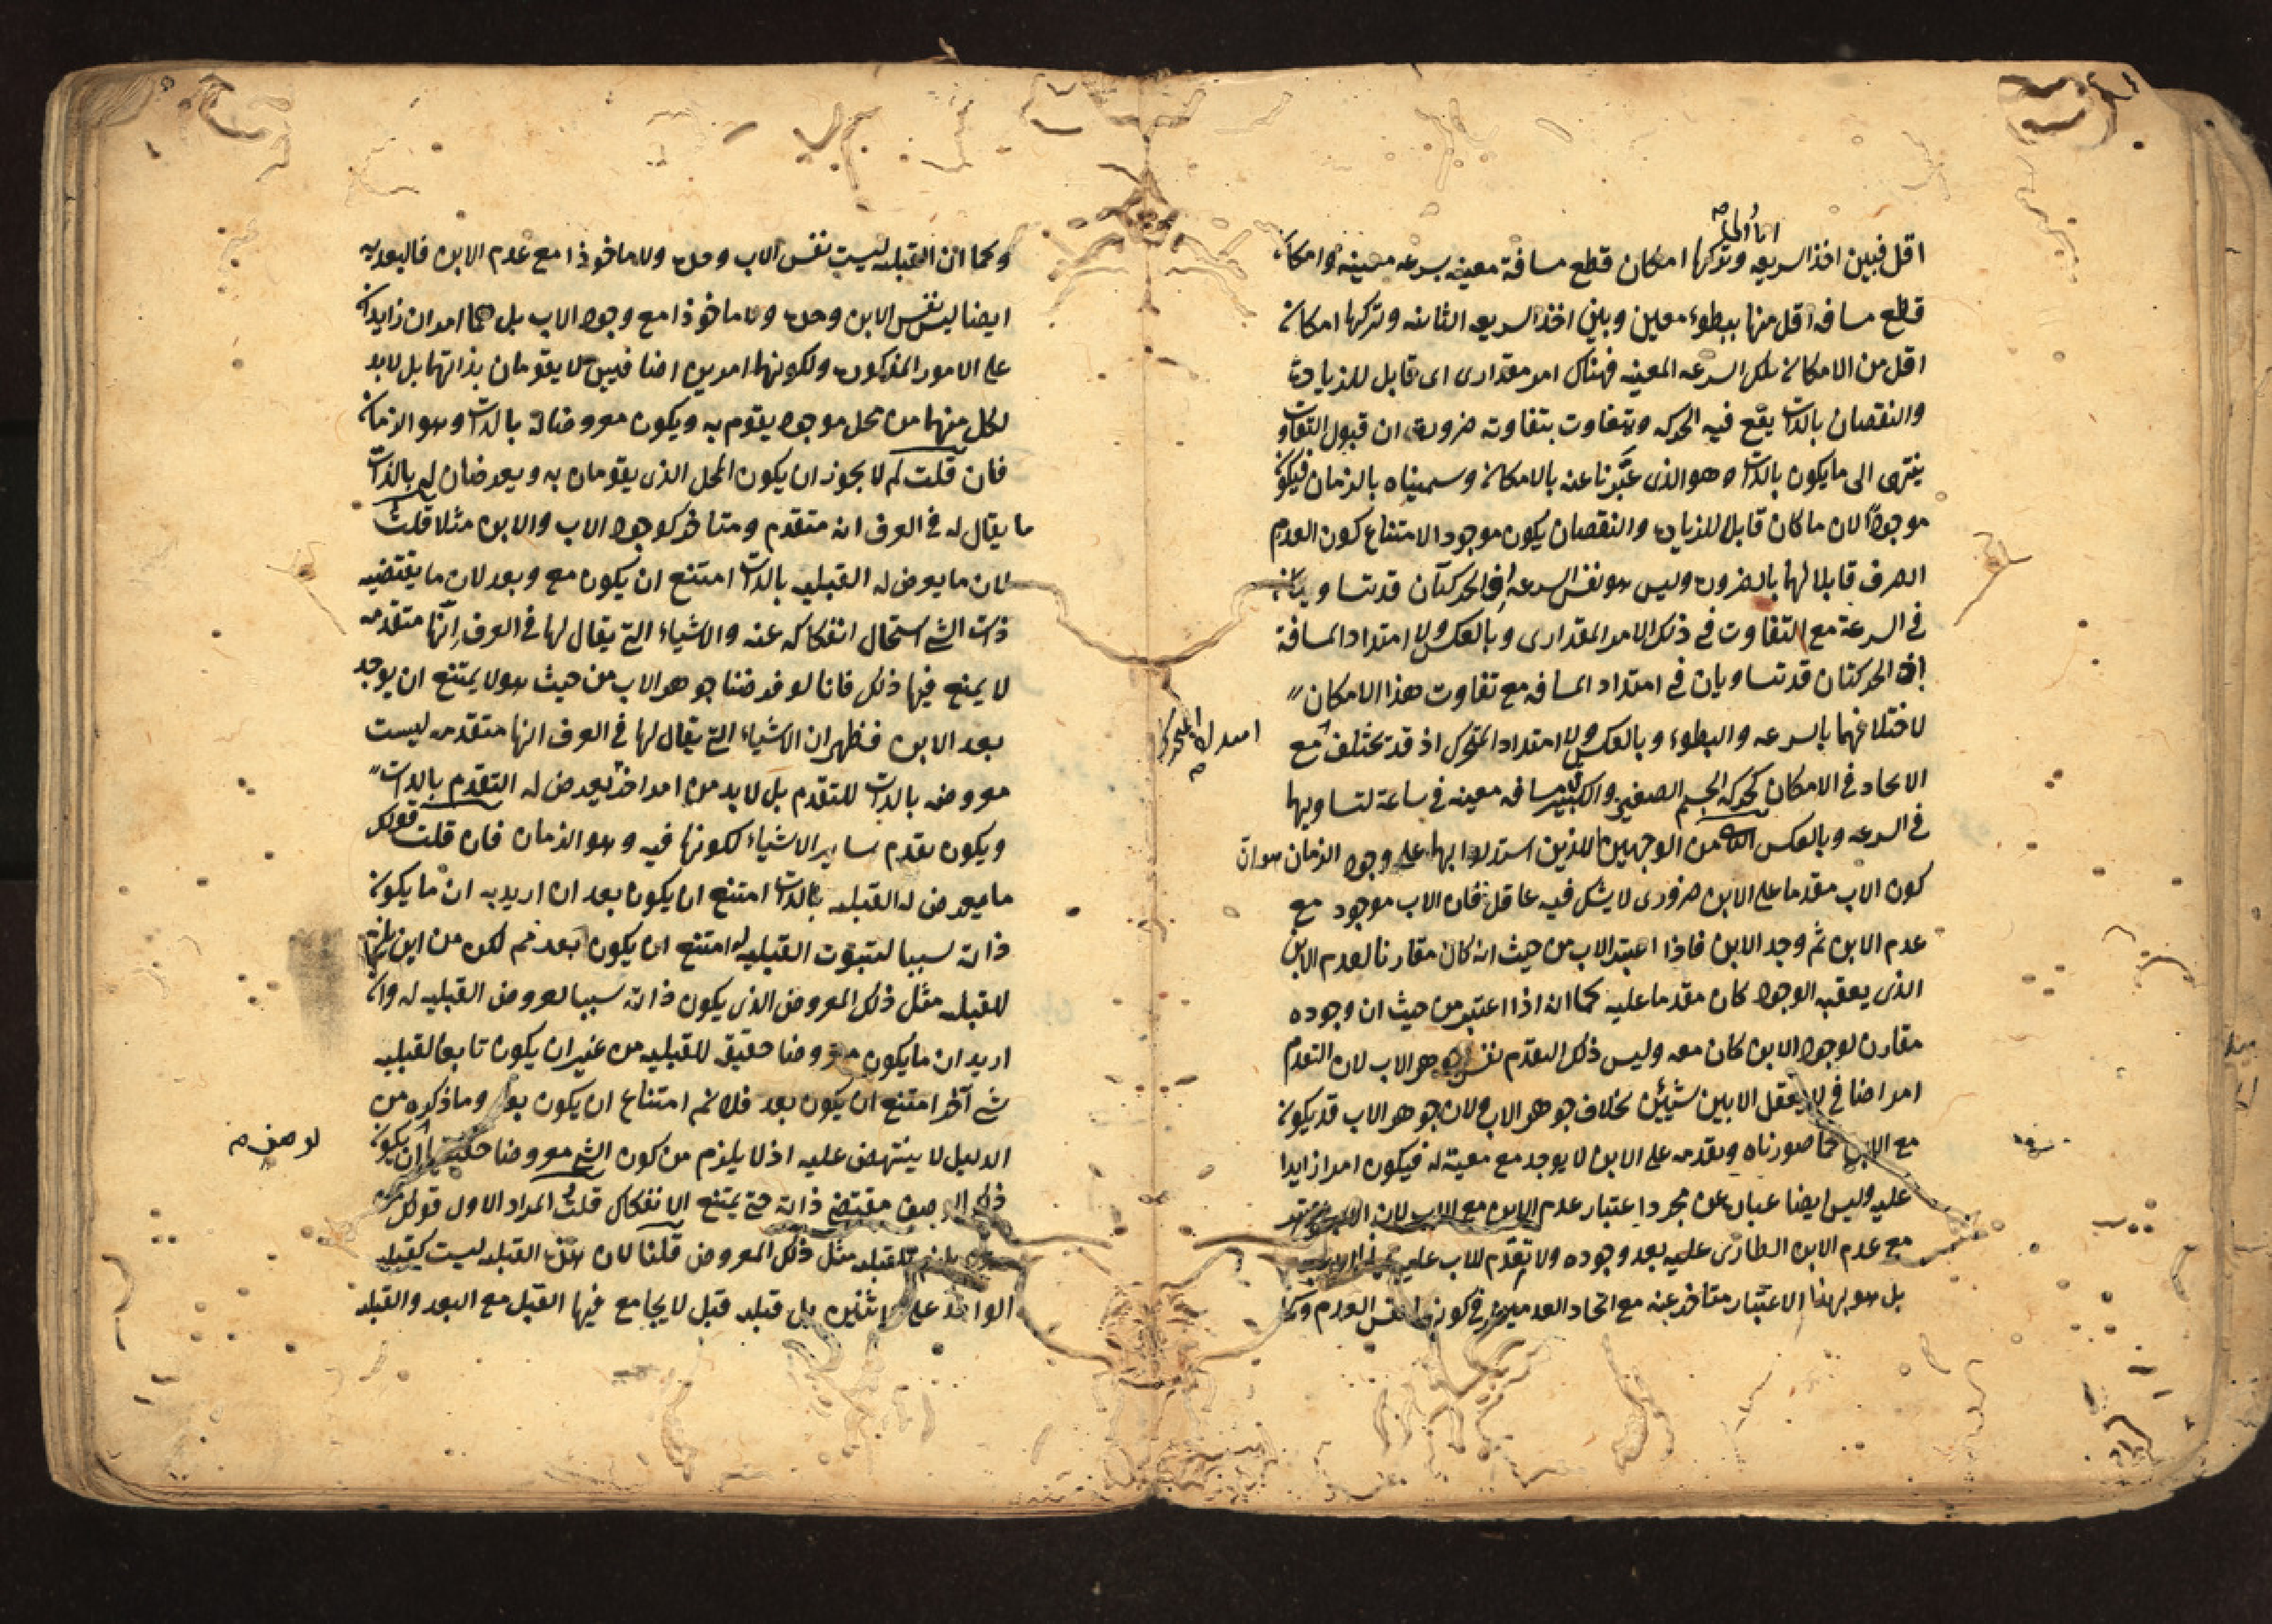 اما أولها
اقل فبين اخذ السريعه وتركها امكان قطع مسافة معينه بسرعه معينه وامكان
قطع مسافه اقل منها ببطوء معين وبين اخذ السريعه الثانيه وتركها امكان
اقل من الامكان بتلك السرعه المعينه فهناك امر مقدارى اى قابل للزيادة
والنقصان بالذات يقع فيه الحركه وتتفاوت بتفاوته ضرورة ان قبول التفاوت
ينتهى الى ما يكون بالذات وهو الذى عبّرنا عنه بالامكان وسميناه بالزمان فيكون
موجودا لان ما كان قابلا للزيادة والنقصان يكون موجودا لامتناع كون العدم
الصرف قابلا لهما بالضرورة وليس هو نفس السرعه اذ الحركتان قد تتساويان
فى السرعة مع التفاوت فى ذلك الامر المقدارى وبالعكس ولا امتداد المسافة
اذ الحركتان قد تتساويان فى امتداد المسافه مع تفاوت هذا الامكان
لاختلافهما بالسرعه والبطوء وبالعكس ولا امتداد المتحرك اذ قد تختلف مع
الاتحاد فى الامكان كحركة الجسم الصغير والكبير مسافه معينه فى ساعة لتساويهما
فى السرعه وبالعكس من الوجهين اللذين استدلوا بهما على وجود الزمان هو انّ
كون الاب مقدما على الابن ضرورى لا يشك فيه عاقل فان الاب موجود مع
عدم الابن ثم وجد الابن فاذا اعتبر الاب من حيث انه كان مقارنا لعدم الابن
الذى يعقبه الوجود كان مقدما عليه كما انه اذا اعتبر من حيث ان وجوده
مقارن لوجود الابن كان معه وليس ذلك التقدم نفس جوهر الاب لان التقدم
امر اضافى لا يعقل الا بين شيئين بخلاف جوهر الاب ولان جوهر الاب قد يكون
مع الابن كما صورناه وتقدمه على الابن لا يوجد مع معيته له فيكون امرا زايدا
عليه وليس ايضا عبارة عن مجرد اعتبار عدم الابن مع الاب لان الاب
مع عدم الابن الطارى عليه بعد وجوده ولا تقدم للاب عليه
بل هو بهذا الاعتبار متاخر عنه مع اتحاد العدمين فى كونهما نفس العدم وكما
وكما ان القبليه ليست نفس الاب وحده ولا ماخوذا مع عدم الابن فالبعديه
ايضا ليس نفس الابن وحده ولا ماخوذا مع وجود الاب بل هما امران زايدان
على الامور المذكورة ولكونهما امرين اضافيين لا يقومان بذاتهما بل لابد
لكل منهما من محل موجود يقوم به ويكون معروضا له بالذات وهو الزمان
فان قلت لم لا يجوز ان يكون المحل الذى يقومان به ويعرضان له بالذات
ما يقال له فى العرف انه متقدم ومتاخر كوجود الاب والابن مثلا قلت
لان ما يعرض له القبليه بالذات امتنع ان يكون مع وبعد لان ما يقتضيه
ذات الشئ استحال انفكاكه عنه والاشياء التى يقال لها فى العرف انّها متقدمه
لا يمنع فيها ذلك فانا لو فرضنا جوهر الاب من حيث هو لا يمتنع ان يوجد
بعد الابن فظهر ان الاشياء التى يقال لها فى العرف انها متقدمه ليست
معروضه بالذات للتقدم بل لابد من امر اخر يعرض له التقدم بالذات
ويكون تقدم ساير الاشياء لكونها فيه وهو الزمان فان قلت قولك
ما يعرض له القبليه بالذات امتنع ان يكون بعد ان اريد به ان ما يكون
ذاته سببا لثبوت القبليه له امتنع ان يكون بعد نعم لكن من اين
للقبليه مثل ذلك المعروض الذى يكون ذاته سببا لعروض القبليه له وان
اريد ان ما يكون معروضا حقيقى للقبليه من غير ان يكون تابعا لقبليه
شئ آخر امتنع ان يكون بعد فلا نم امتناع ان يكون بعد وما ذكره من
الدليل لا ينتهض عليه اذ لا يلزم من كون الشئ معروضا حقيقيا ان يكون
ذلك الوصف مقتضى ذاته حتى يمتنع الانفكاك قلت المراد الاول قولك
للقبليه مثل ذلك المعروض قلنا لان هذه القبليه ليست كقبليه
الواحد على الاثنين بل قبليه قبل لا يجامع فيها القبل مع البعد والقبليه